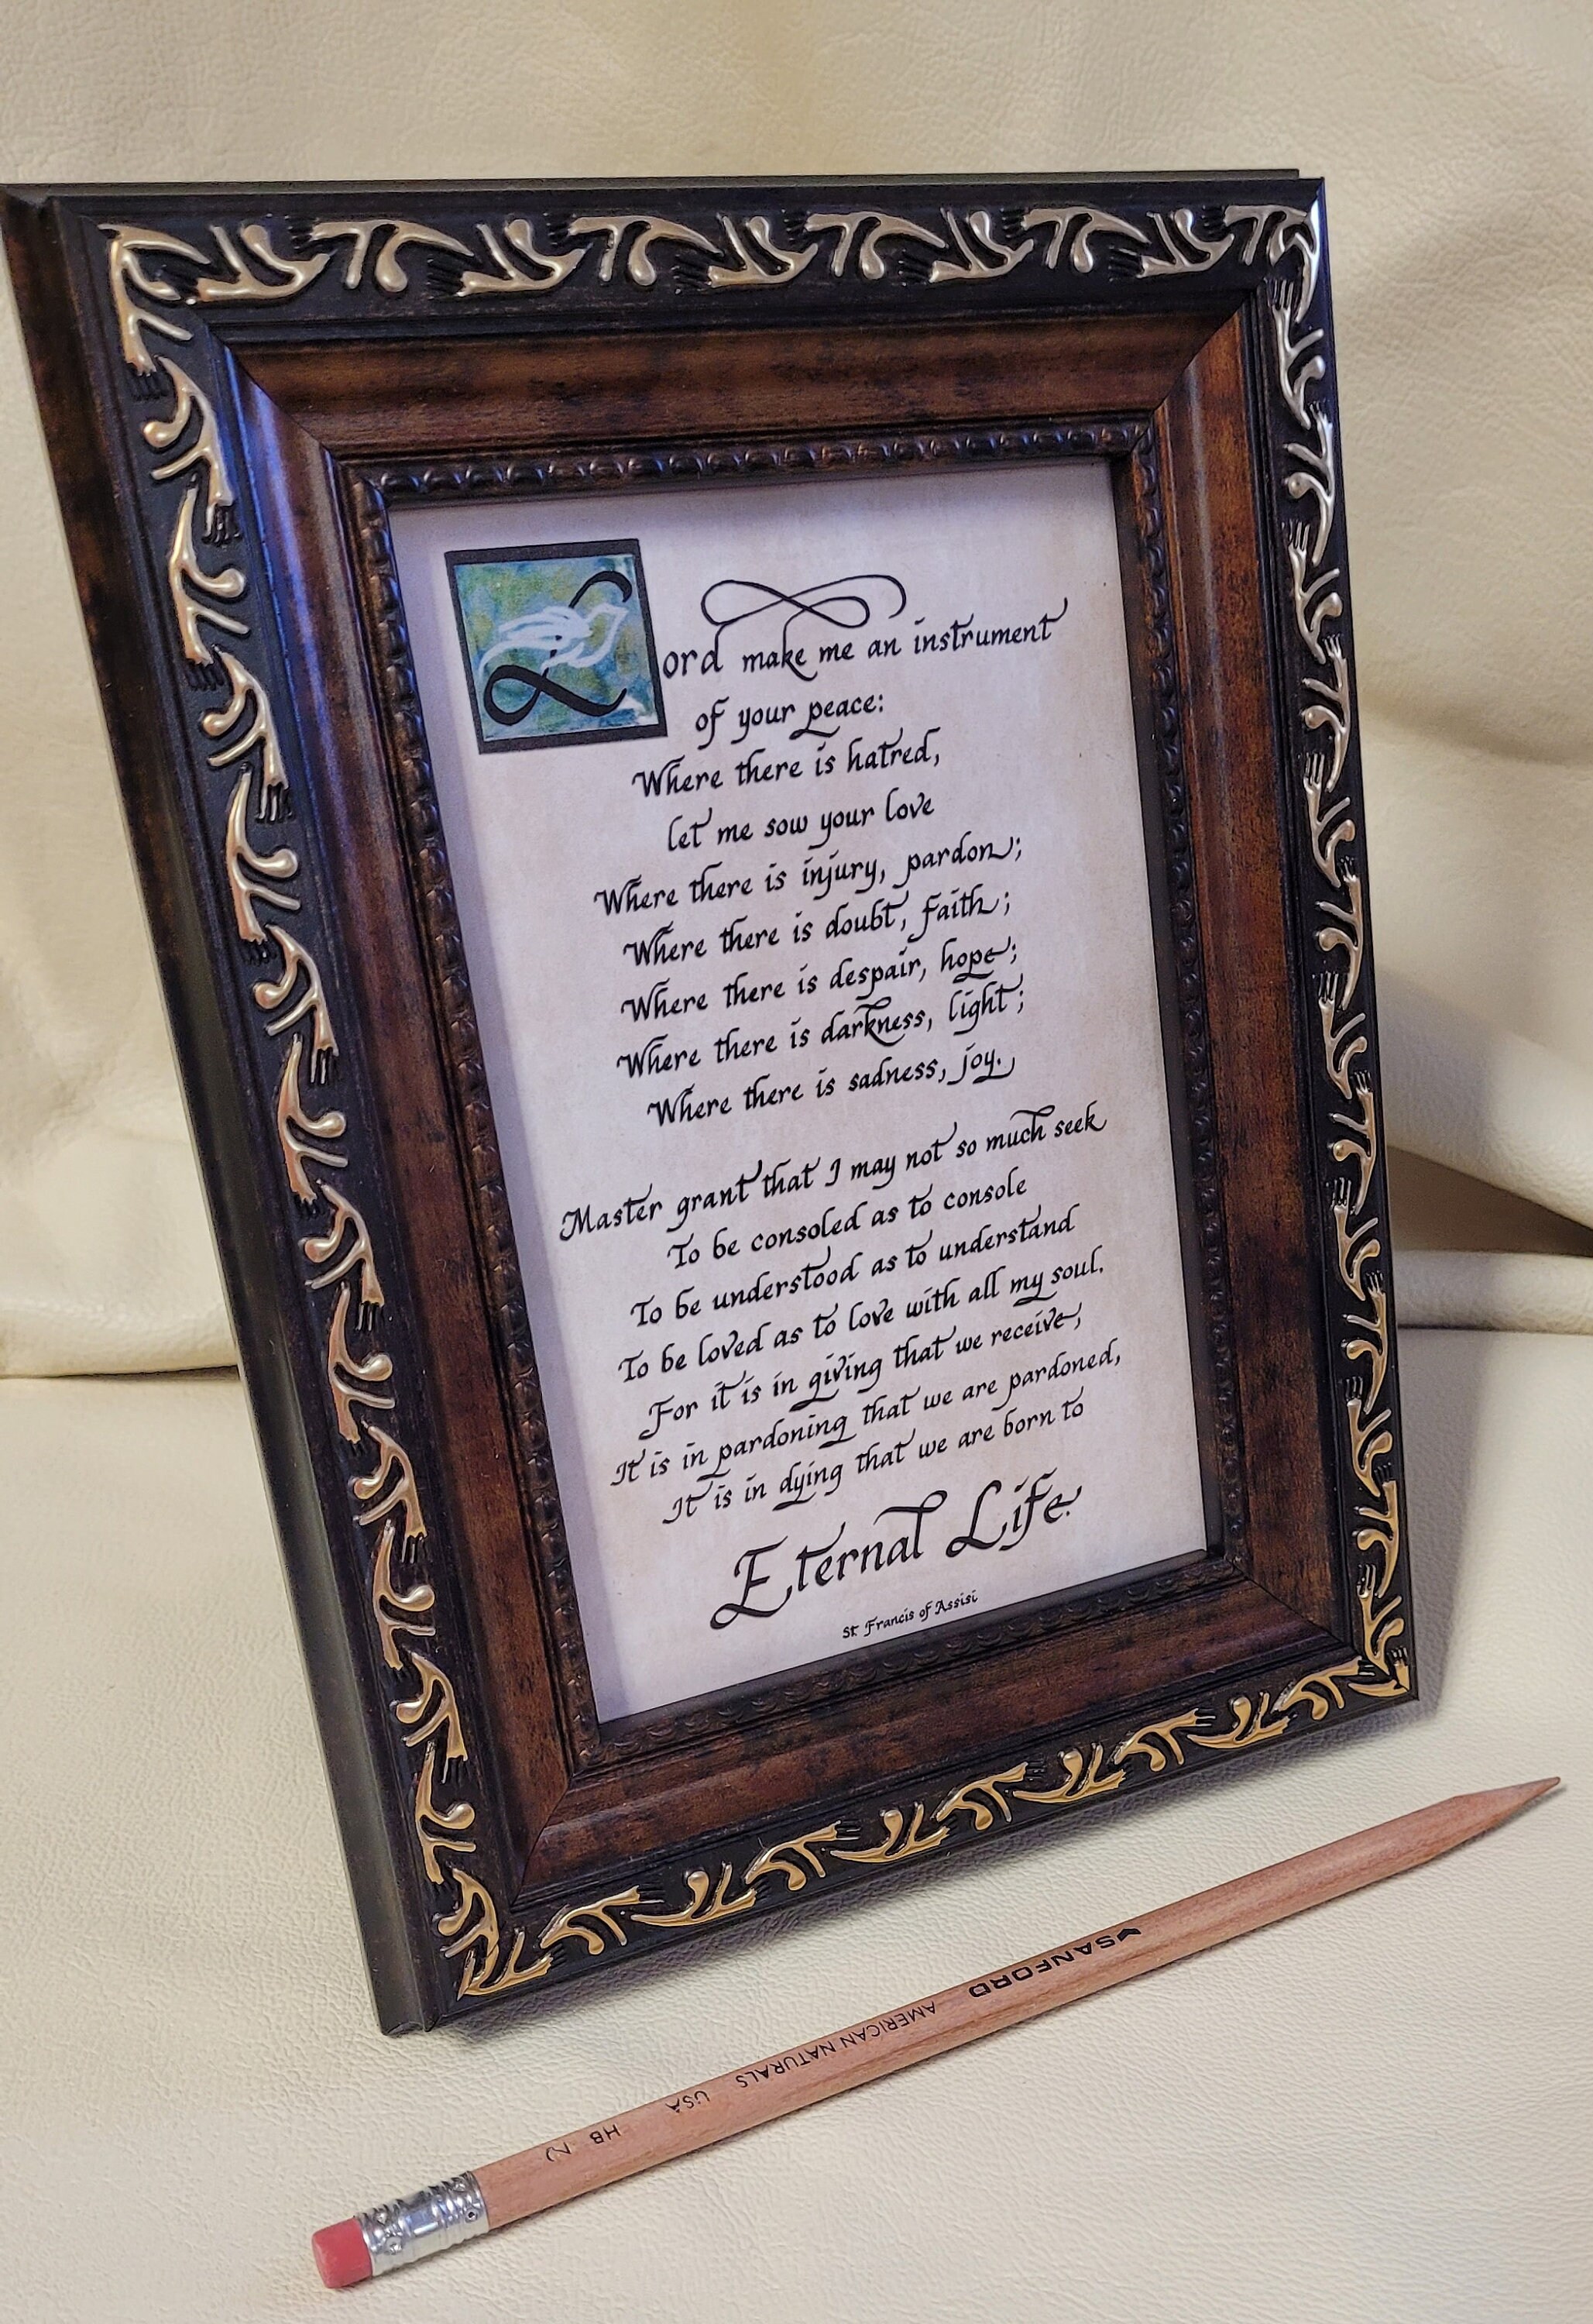 Lord make me an instrument
of your peace:
Where there is hatred,
let me sow your love
Where there is injury, pardon;
Where there is doubt, faith;
Where there is despair, hope;
Where there is darkness, light;
Where there is sadness, joy.
Master grant that I may not so much seek
To be consoled as to console
To be understood as to understand
To be loved as to love with all my soul.
For it is in giving that we receive,
It is in pardoning that we are pardoned,
It is in dying that we are born to
Eternal Life.
St Francis of Assisi
SANFORD AMERICAN NATURALS USA HB 2